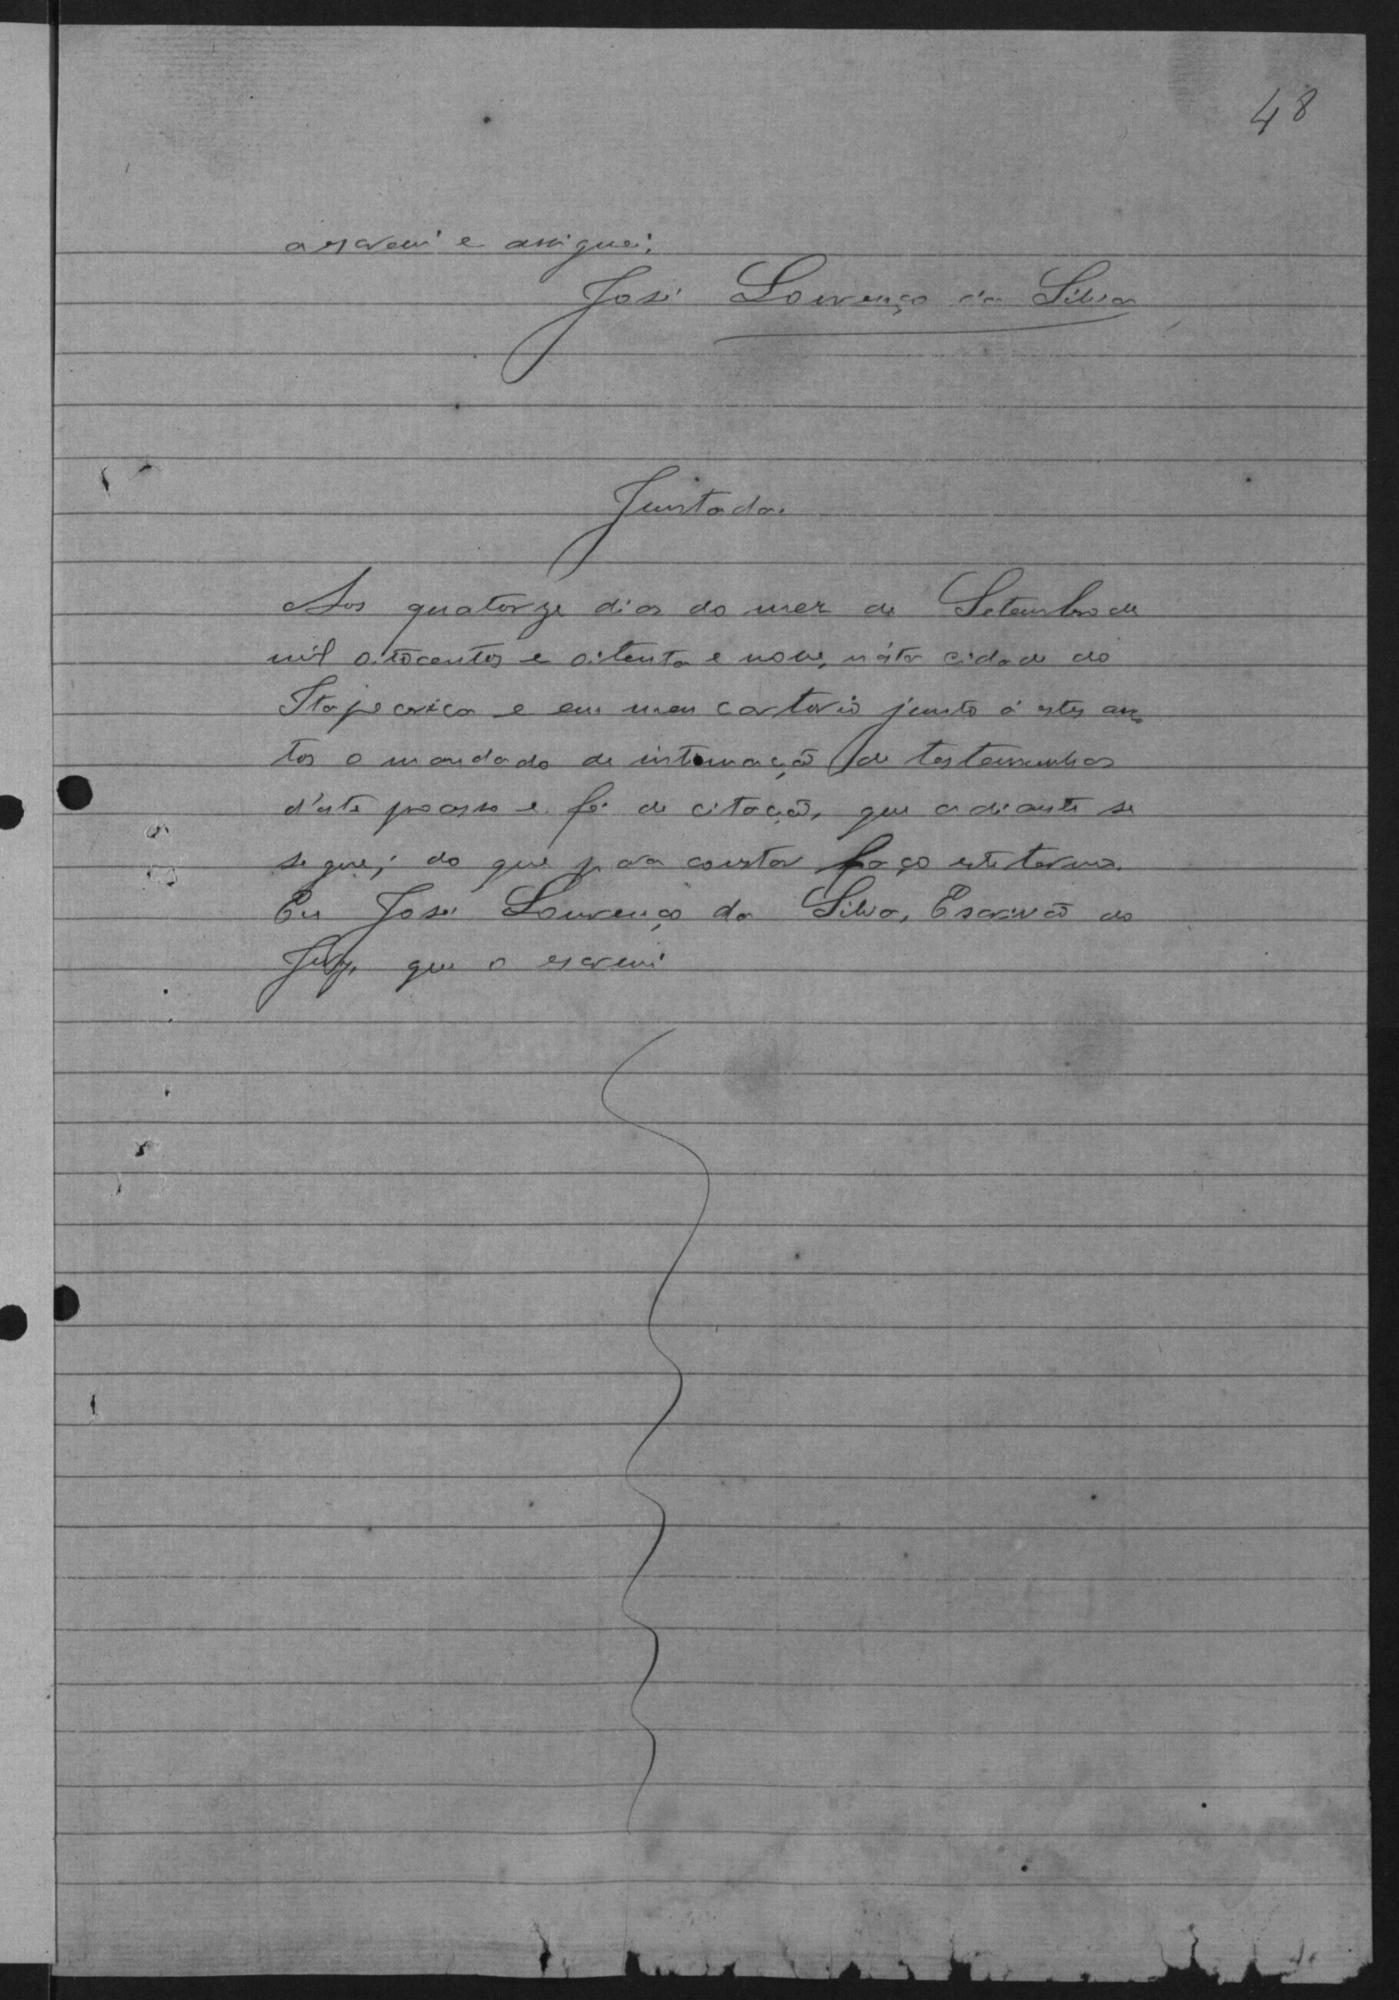 48
a escrevi e assignei.
José Lourenço da Silva
Juntada.
Aos quatorze dias do mez de Setembro de
mil oitocentos e oitenta e nove, n'esta cidade do
Itapecerica e em meu cartorio junto á estes au-
tos o mandado de intimação de testemunhas
d'este processo e fé de citação, que adiante se
segue; do que para constar faço este termo.
Eu José Lourenço da Silva, Escrivão do
Jury, que o escrevi